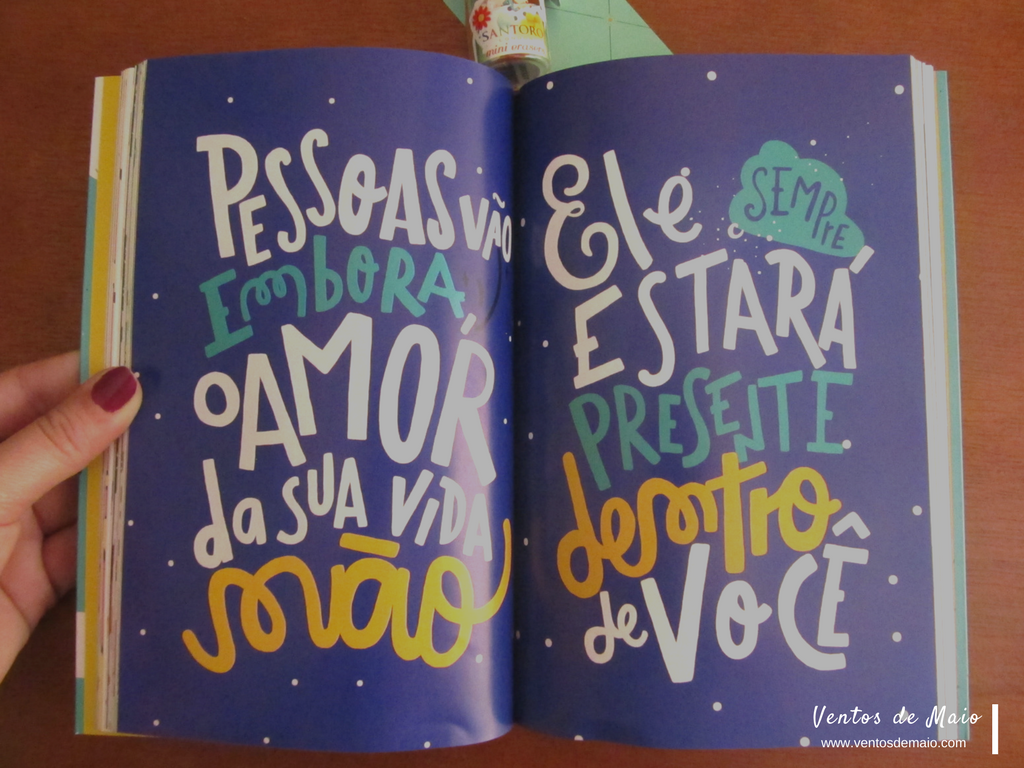 SANTORO
mini erasers
PESSOAS VÃO
EMBORA
O AMOR
da SUA VIDA
não
Ele SEMPRE
ESTARÁ
PRESENTE
dentro
de VOCÊ
Ventos de Maio
www.ventosdemaio.com